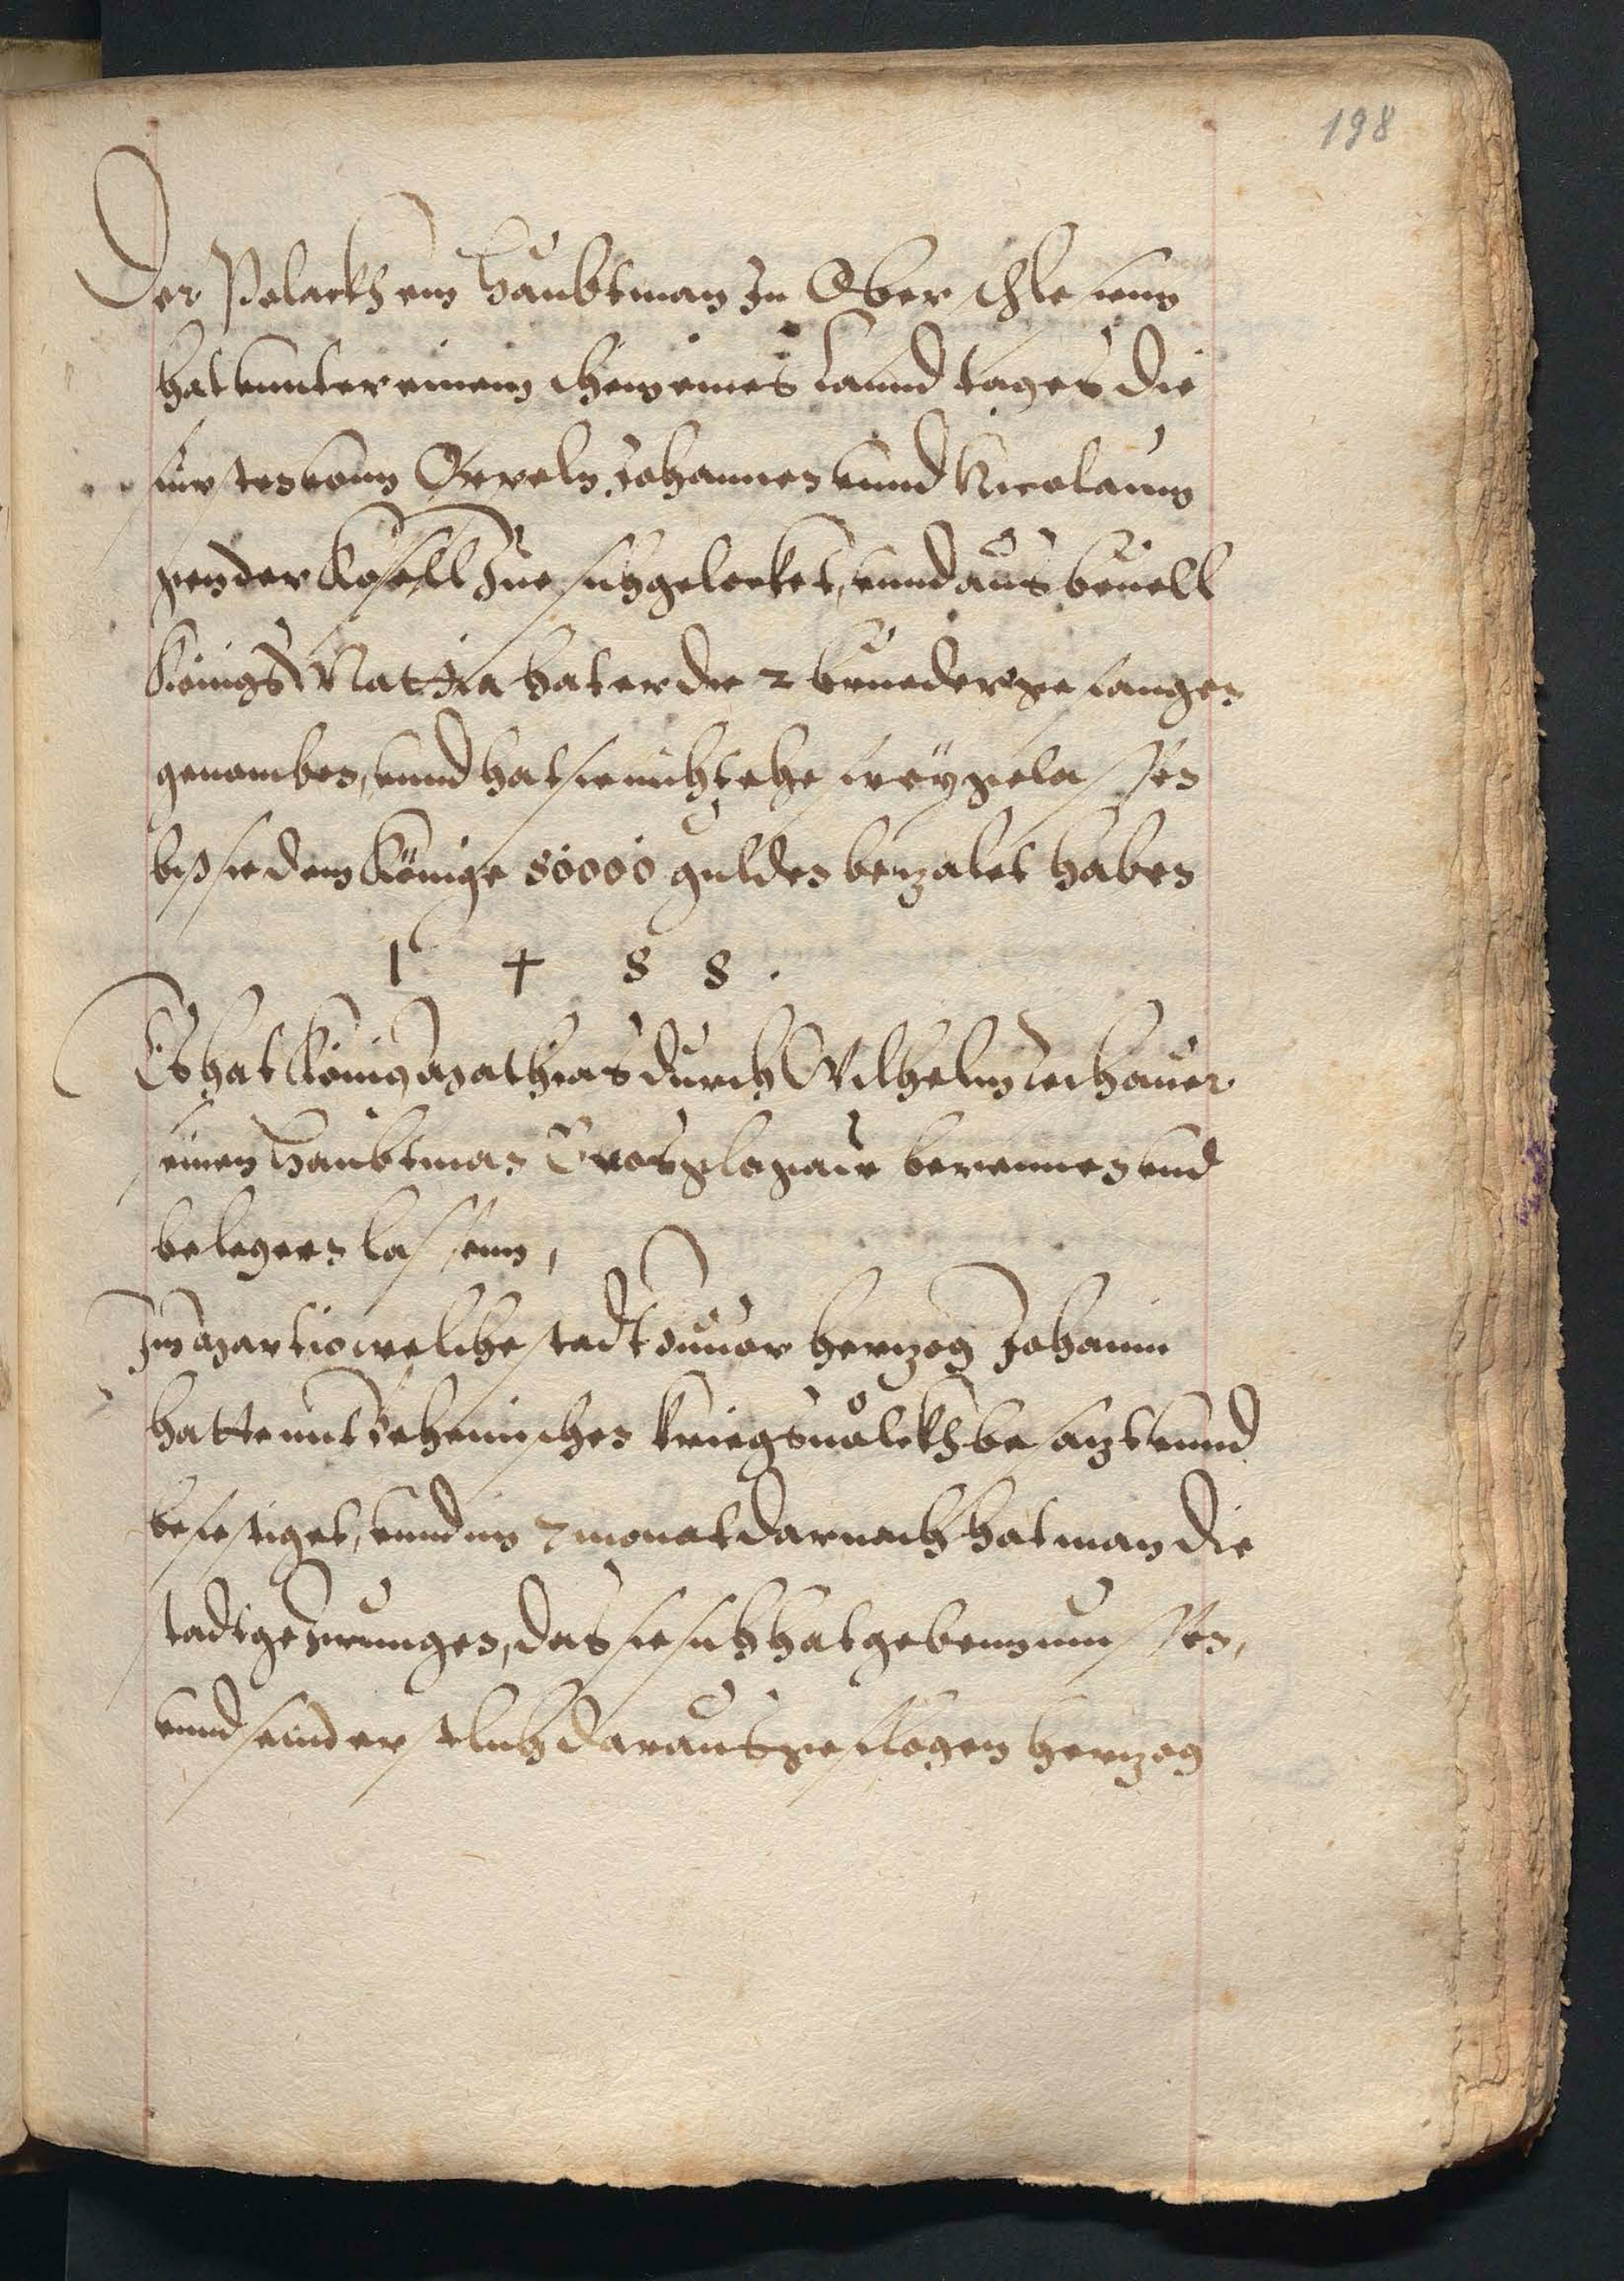 198
Der Polackh ein Haubtman In Ober schlesienn
hat unnter einem schein eines Lannd tages die
fursten vonn Oppeln Johannen unnd Nicolaum
gen der Kosell Zue sich gelocket, unnd aus beuell
Königs Mattia hat er die 2 brueder gefangen
genomben, unnd hat sie nicht ehe freÿ gelassen
bis sie dem Könige 80000 gulden betzalet haben
1 4 8 8 .
Es hat König Mathias durch Wilhelm
seinen Haubtman Grosglogaw berennen und
belegern lassenn,
Im Martio welche stadt zuuor hertzog Johann
hatte mit Behemischen kriegsuolckh besatzt unnd
befestiget, unnd im 7 monat darnach hat man die
stadt gezwungen, das sie sich hat geben mussen,
unnd seind erstlich daraus getzogen hertzog